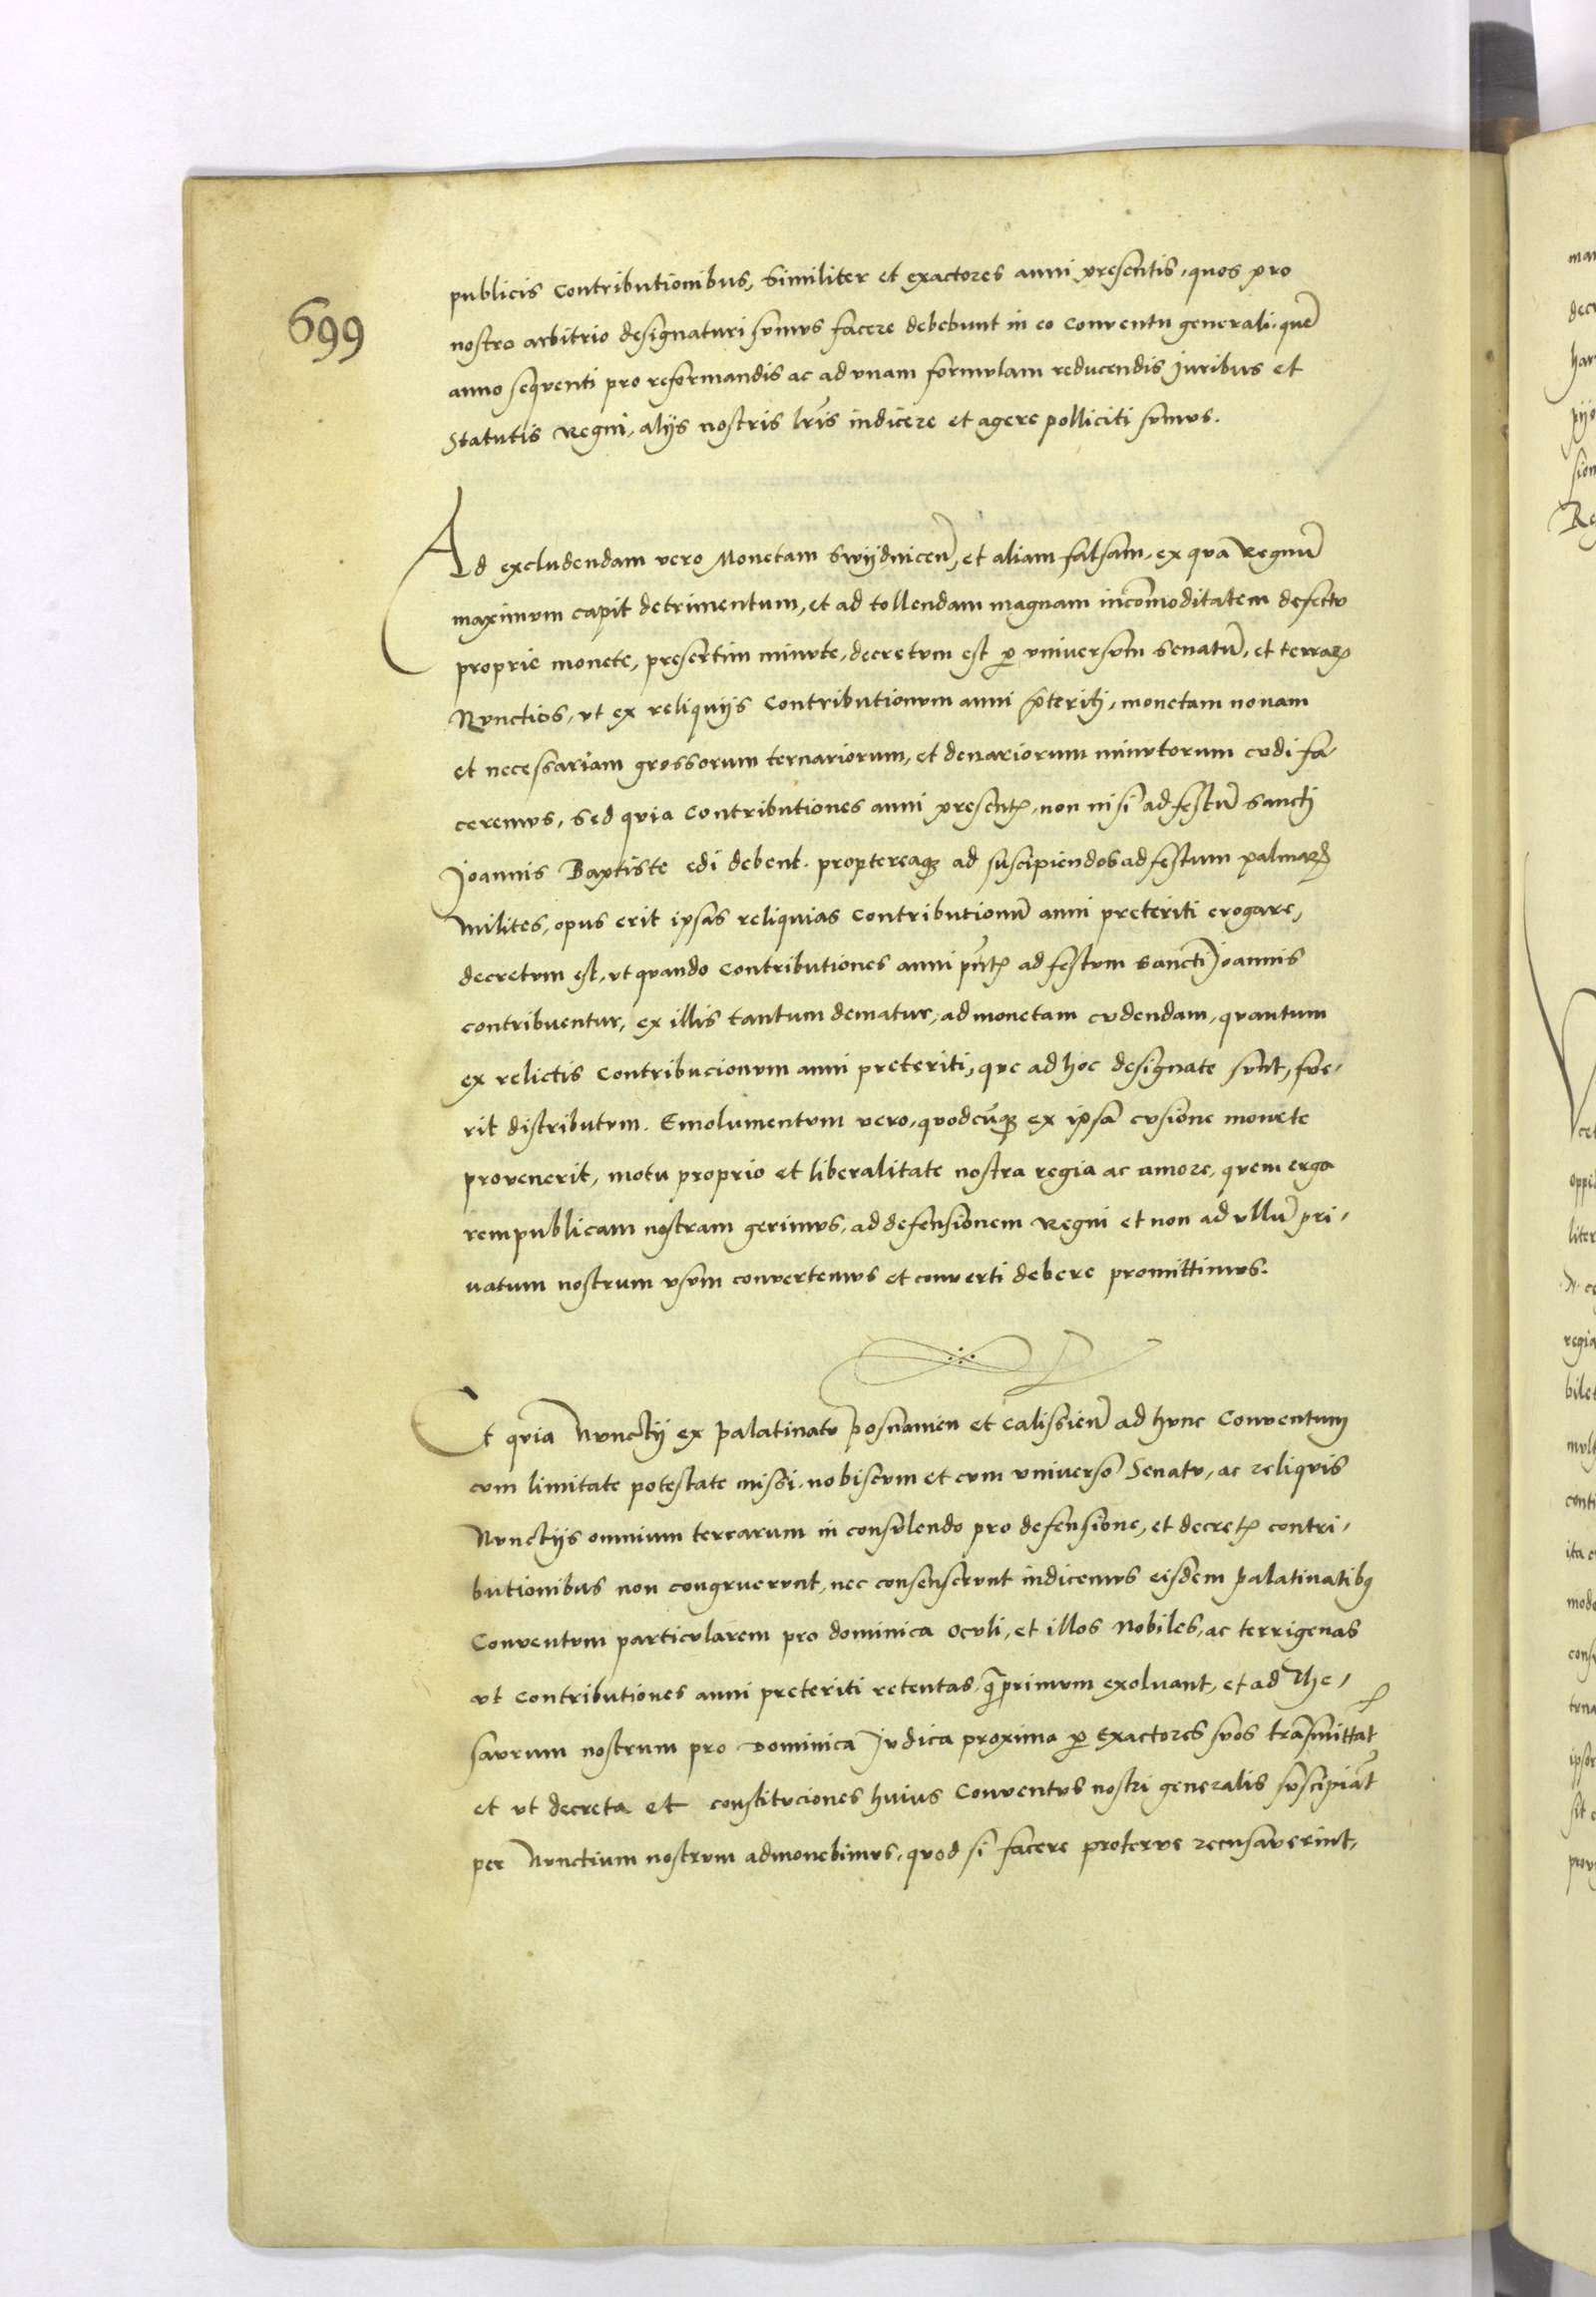 699
publicis Contributionibus, similiter et exactores anni presentis, quos pro
nostro arbitrio designaturi sumus facere debebunt in eo Conventu generali, que᷑
anno sequenti pro reformandis ac ad unam formulam reducendis Juribus et
Statutis Regni, alijs nostris lr̃is indicere et agere polliciti sumus.
Ad excludendam vero Monetam Swijdnicen̄, et aliam falsam, ex qua Regnū
maximum capit detrimentum, et ad tollendam magnam incōmoditatem defectu
proprie monete, presertim minute, decretum est ꝑ universum Senatū, et terraꝝ
Nunctios, ut ex reliquijs Contributionum anni p̄teriti, monetam novam
et necessariam grossorum ternariorum, et denariorum minutorum cudi fa-
ceremus, Sed quia Contributiones anni presentꝭ, non nisi ad festū Sancti
Joannis Baptiste edi debent. proptereaqꝫ ad suscipiendos ad festum palmaꝝ
milites, opus erit ipsas reliquias Contributionū anni preteriti erogare,
decretum est, ut quando Contributiones anni pn̄tꝭ ad festum Sancti Joannis
contribuentur, ex illis tantum dematur, ad monetam cudendam, quantum
ex relictis Contribucionum anni preteriti, que ad hoc designate sunt, fue-
rit distributum. Emolumentum vero, quodcūqꝫ ex ipsa cusione monete
provenerit, motu proprio et liberalitate nostra regia ac amore, quem erga
rempublicam nostram gerimus, ad defensionem Regni et non ad ullū pri-
vatum nostrum usum convertemus et converti debere promittimus.
Et quia Nunctij ex palatinatu Posnanien et Calissien̄ ad hunc Conventum
cum limitate potestate missi, nobiscum et cum universo Senatu, ac reliquis
Nunctijs omnium terrarum in consulendo pro defensione, et decretꝭ contri-
butionibus non congruerunt, nec consenserunt indicemus eisdem Palatinatibꝫ
Conventum particularem pro dominica Oculi, et illos Nobiles, ac terrigenas
ut Contributiones anni preteriti retentas, q̄primum exolvant, et ad The-
saurum nostrum pro Dominica Judica proxima ꝑ Exactores suos trāsmittāt
et ut decreta et constituciones huius Conventus nostri generalis suscipiāt
per Nunctium nostrum admonebimus, quod si facere proterve recusaverint,